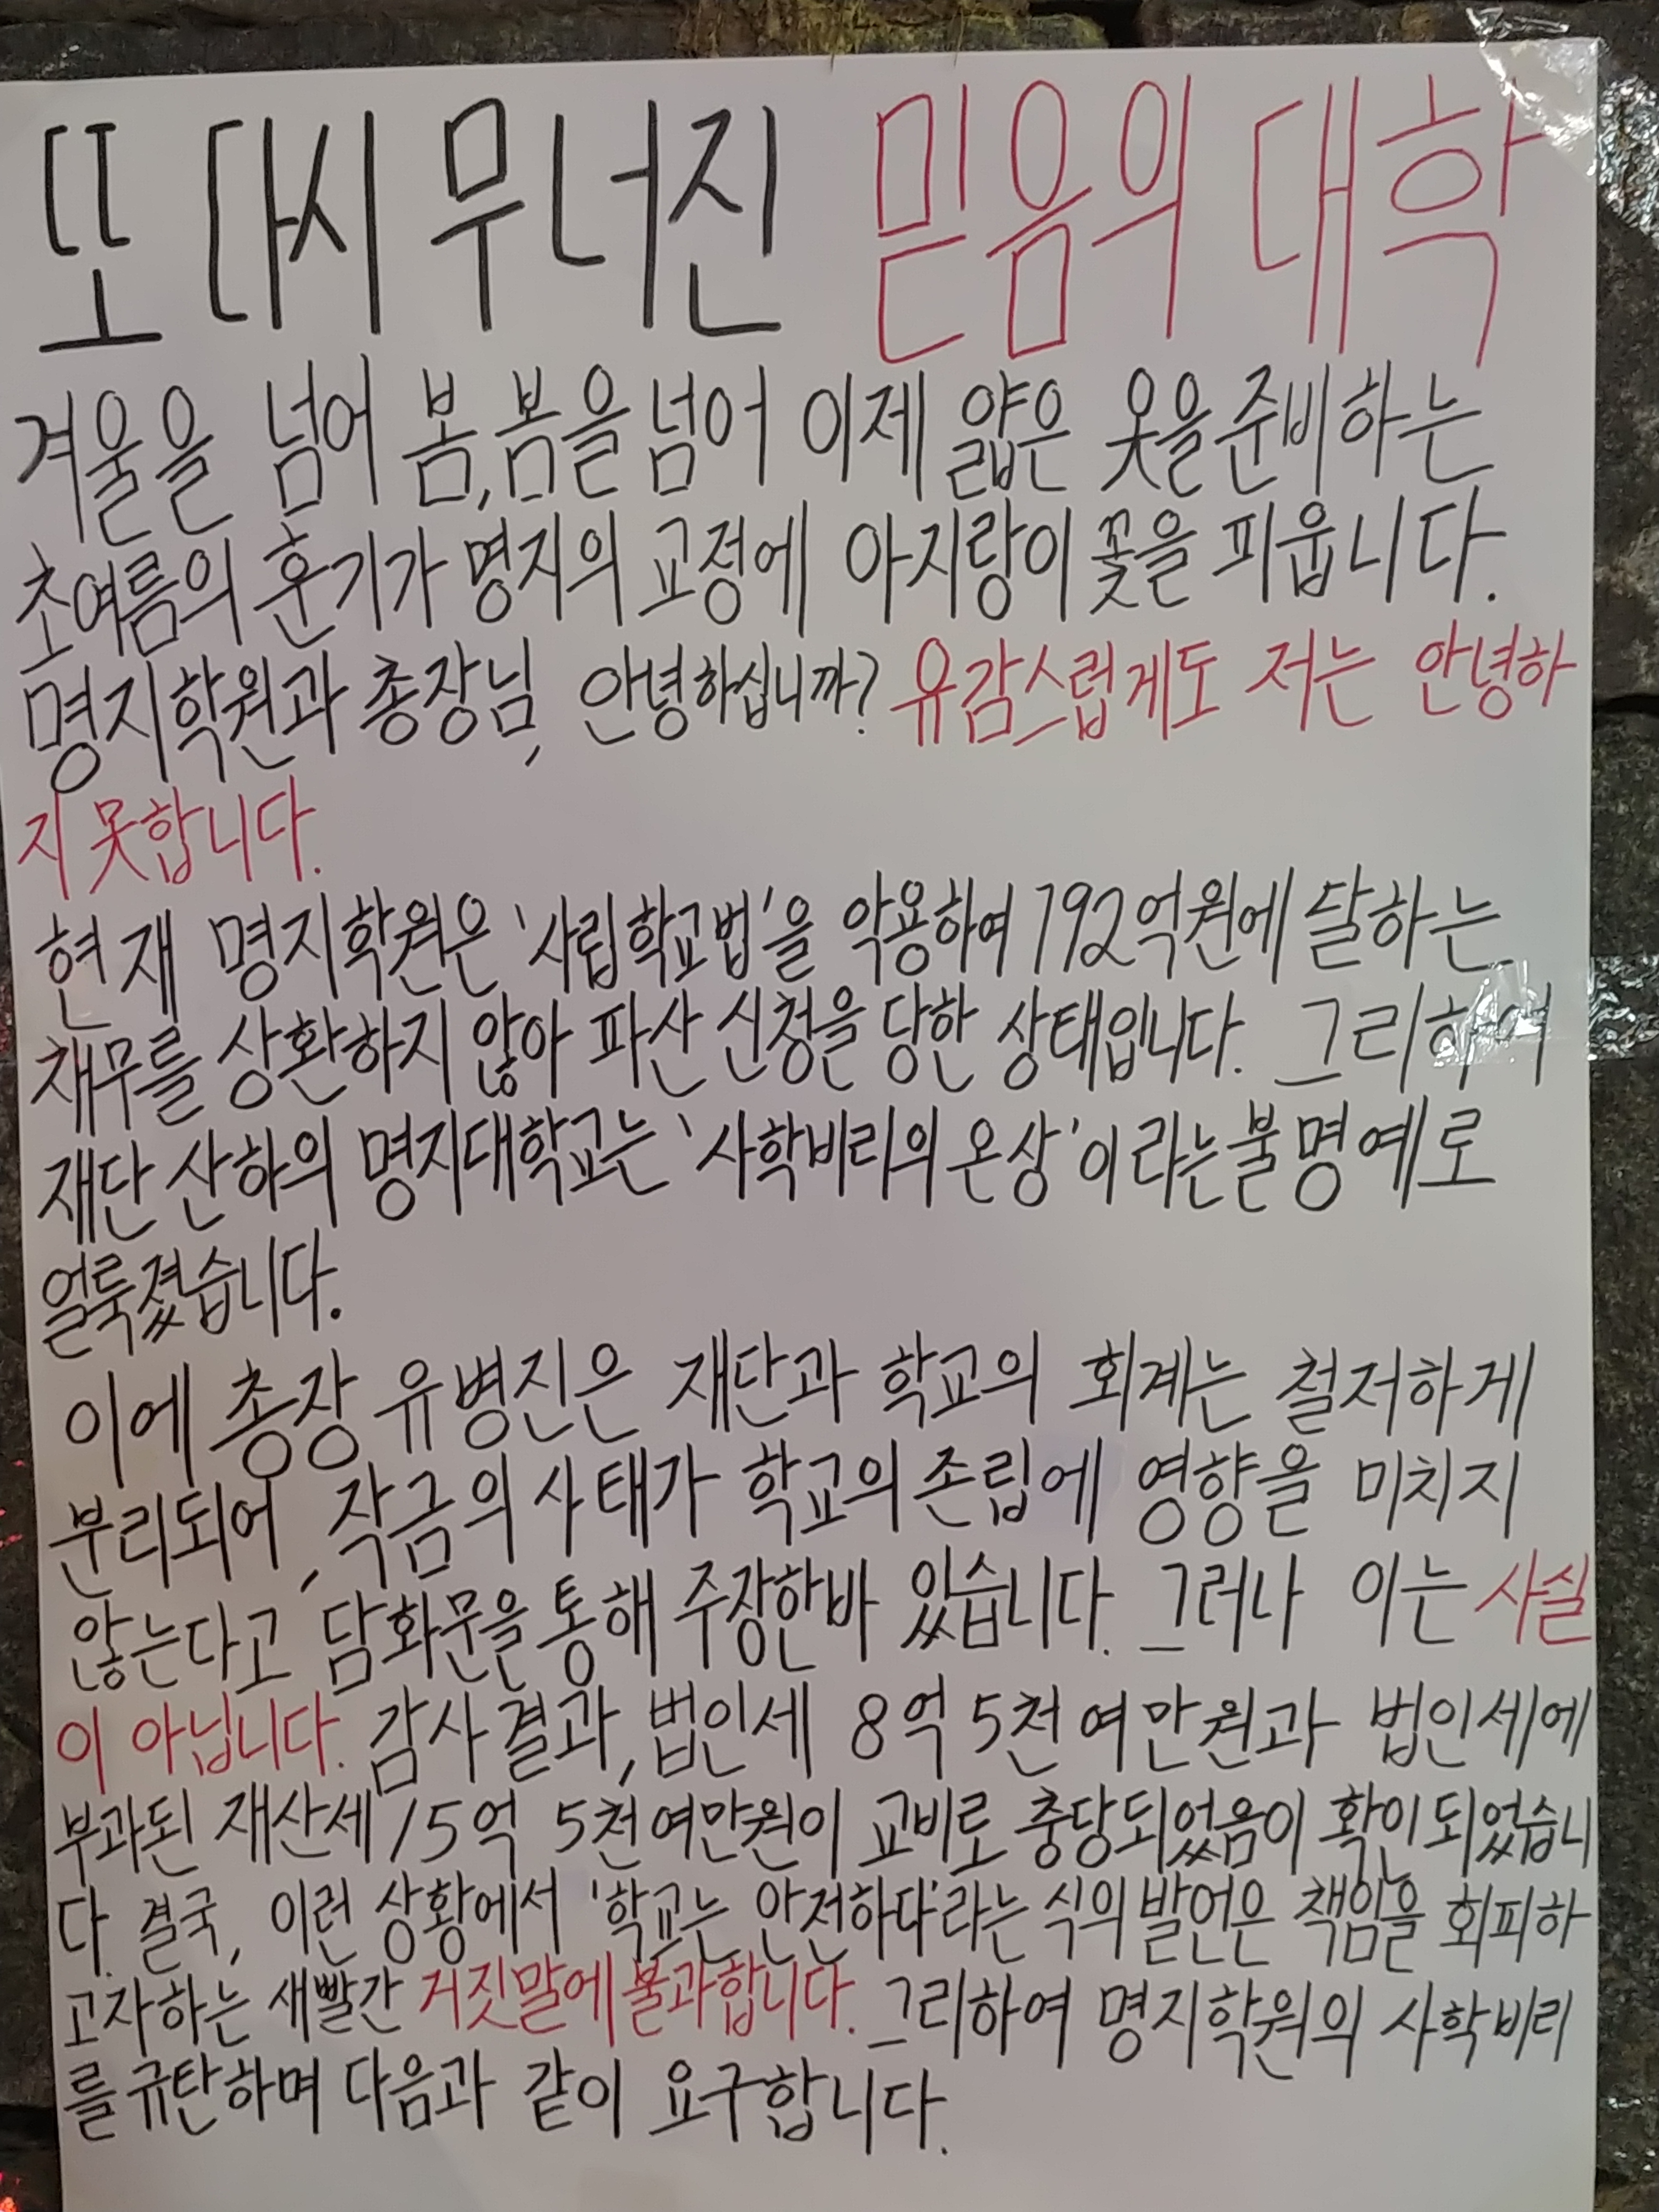 또 다시 무너진 믿음의 대학
겨울을 넘어 봄, 봄을 넘어 이제 얇은 옷을 준비하는
초여름의 훈기가 명지의 교정에 아지랑이 꽃을 피웁니다.
명지학원과 총장님, 안녕하십니까? 유감스럽게도 저는 안녕하
지 못합니다.
현재 명지학원은 '사립학교법'을 악용하여 192억원에 달하는
채무를 상환하지 않아 파산 신청을 당한 상태입니다. 그리하여
재단 산하의 명지대학교는 '사학비리의 온상'이라는 불명예로
얼룩졌습니다.
이에 총장 유병진은 재단과 학교의 회계는 철저하게
분리되어, 작금의 사태가 학교의 존립에 영향을 미치지
않는다고 담화문을 통해 주장한바 있습니다. 그러나 이는 사실
이 아닙니다. 감사결과, 법인세 8억 5천여만원과 법인세에
부과된 재산세 15억 5천여만원이 교비로 충당되었음이 확인되었습니
다. 결국, 이런 상황에서 '학교는 안전하다'라는 식의 발언은 책임을 회피하
고자하는 새빨간 거짓말에 불과합니다. 그리하여 명지학원의 사학비리
를 규탄하며 다음과 같이 요구합니다.